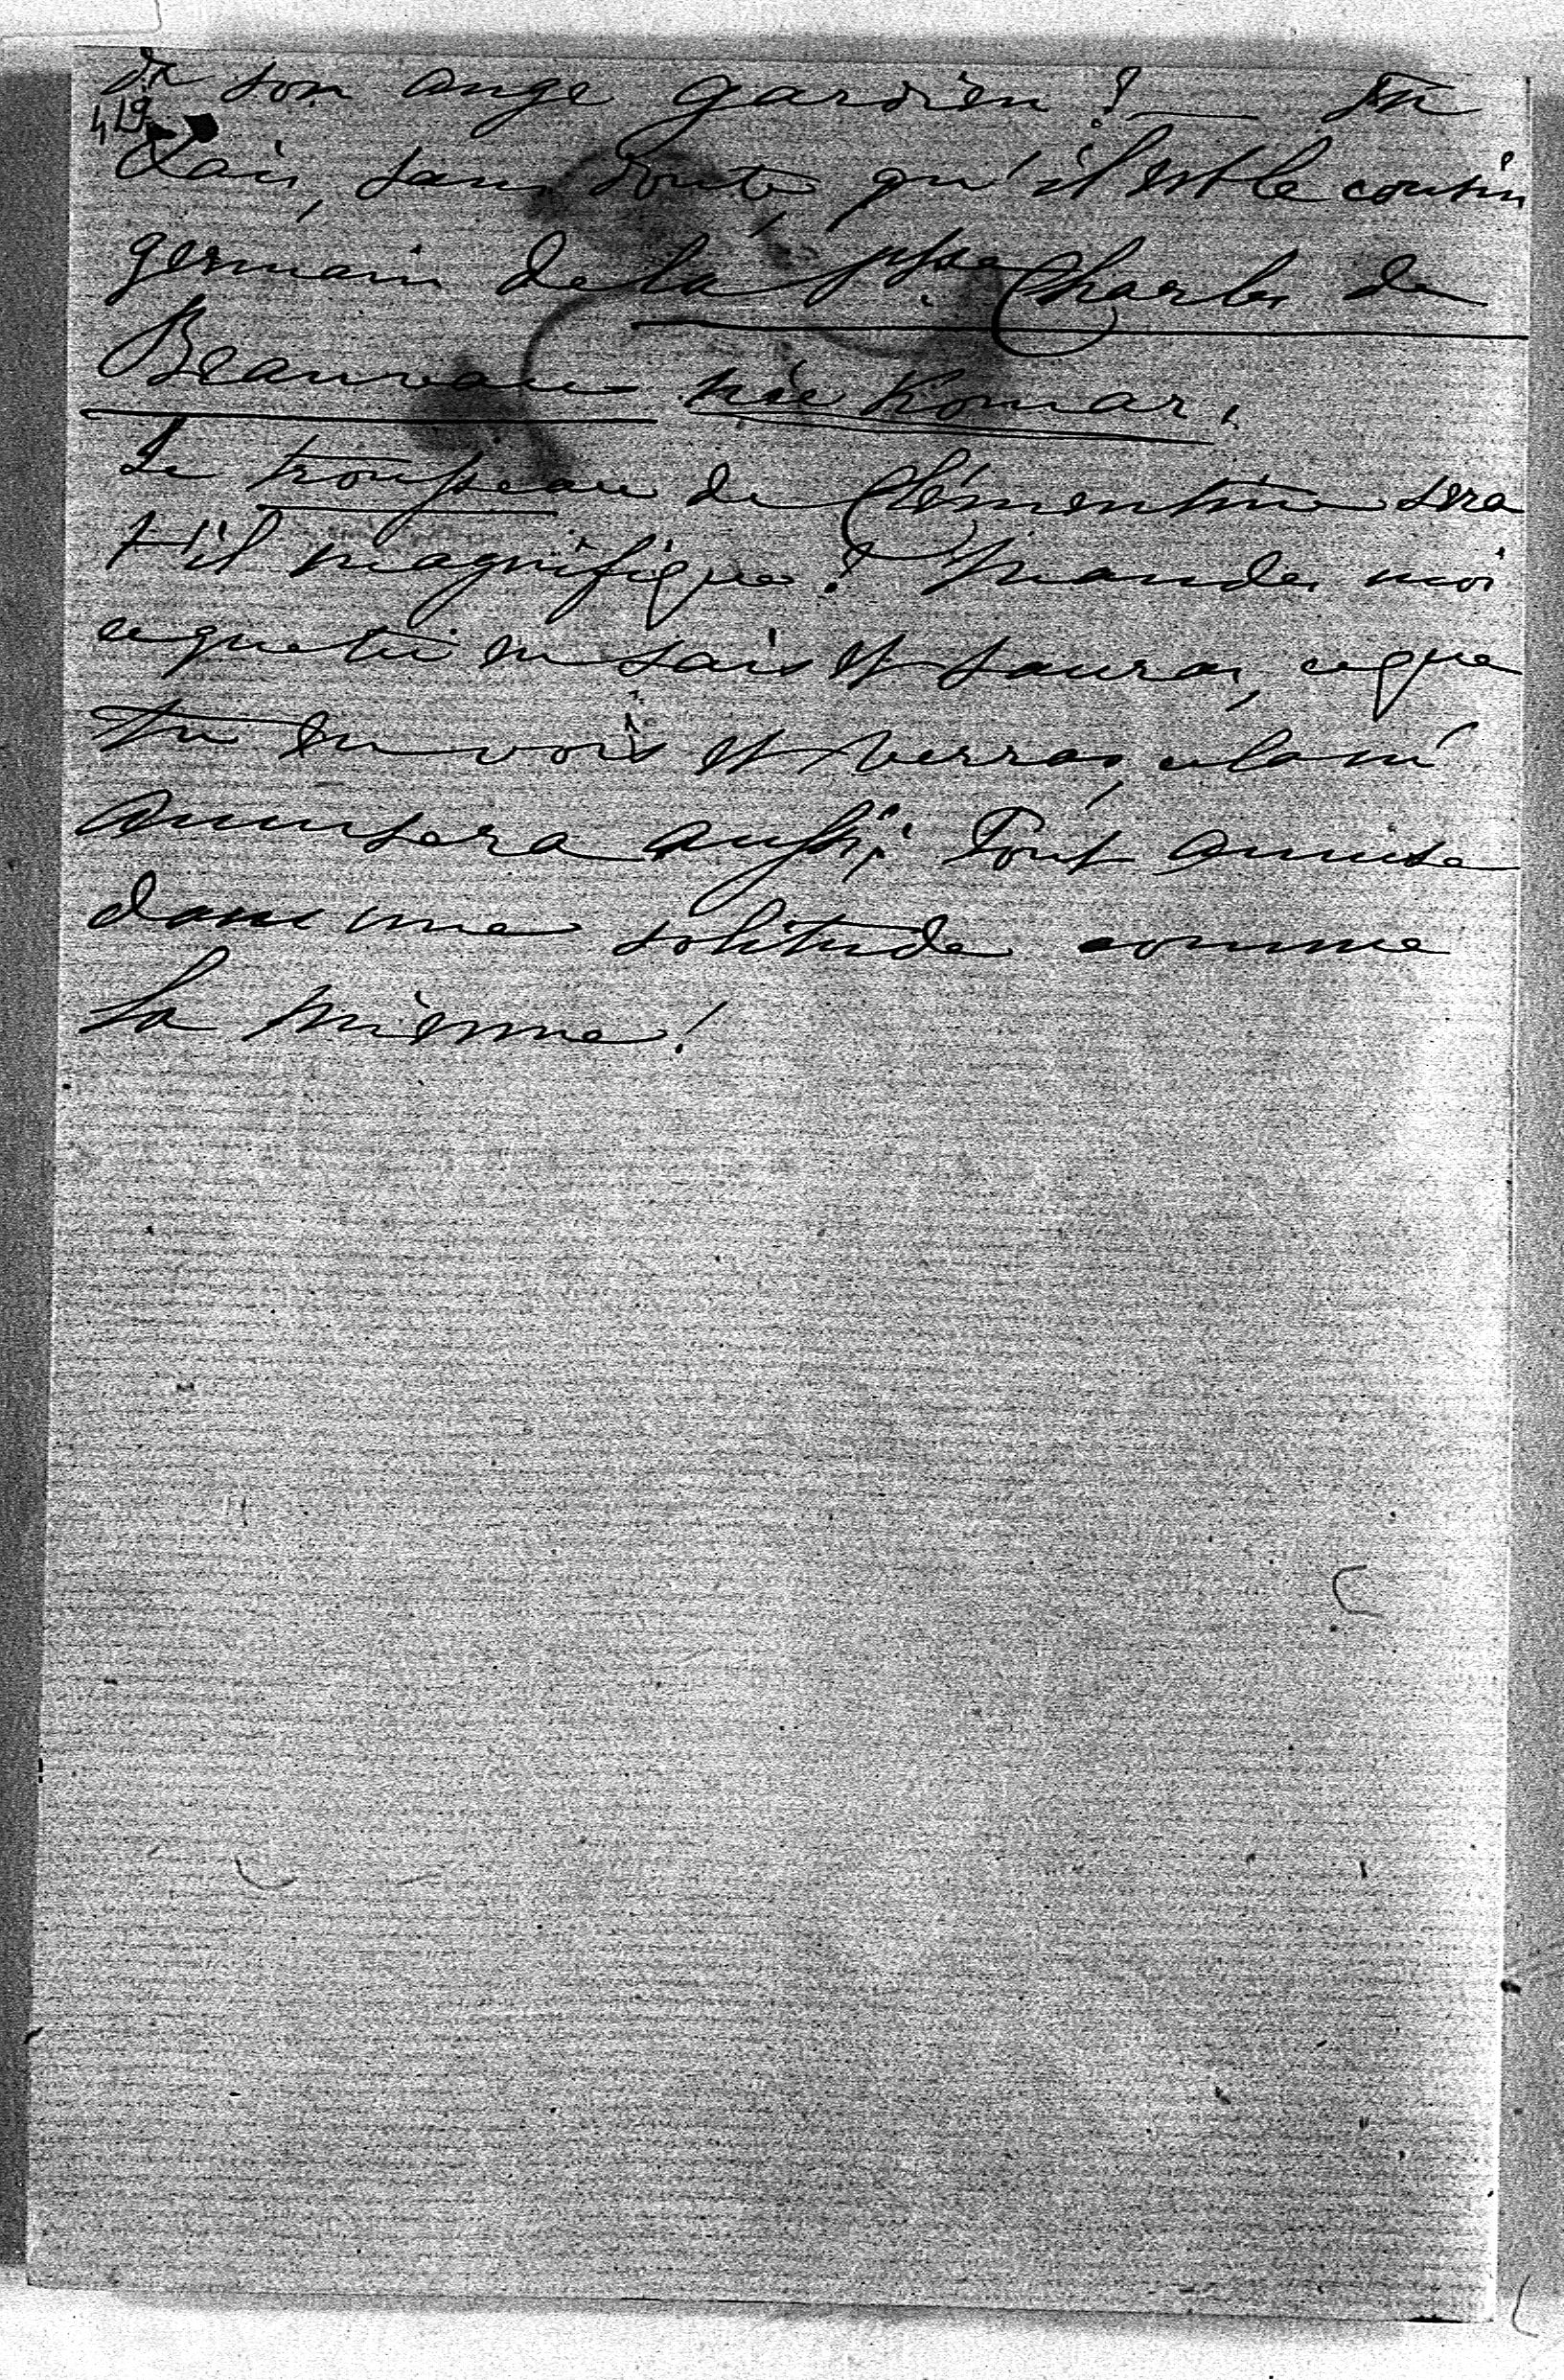 de son ange gardien ? — Tu
419
sais, sans doute, qu'il est le cousin
germain de la psse Charles de
Beauvau née Komar.
Le trousseau de Clémentine sera
t-il magnifique ? Mandes moi
ce que tu en sais et sauras, ce que
tu en vois et verras, cela m'
amusera aussi ; Tout amuse
dans une solitude comme
la mienne !